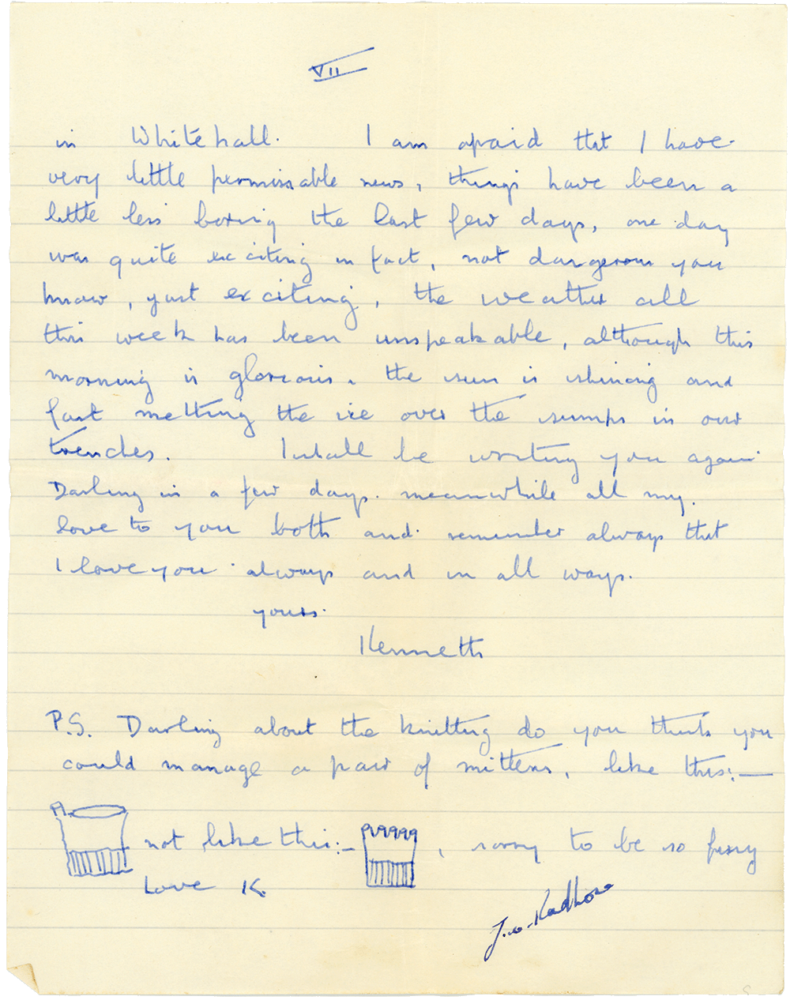 VII
in Whitehall. I am afraid that I have
very little permissable news, things have been a
little less boring the last few days, one day
was quite exciting in fact, not dangerous you
know, just exciting, the weather all
this week has been unspeakable, although this
morning is glorious. the sun is shining and
fast melting the ice over the sumps in our
trenches. I shall be writing you again
Darling in a few days. meanwhile all my
love to you both and remember always that
I love you always and in all ways.
yours.
Kenneth
P.S. Darling about the knitting do you think you
could manage a pair of mittens, like this:—
not like this:— , sorry to be so fussy
Love K.